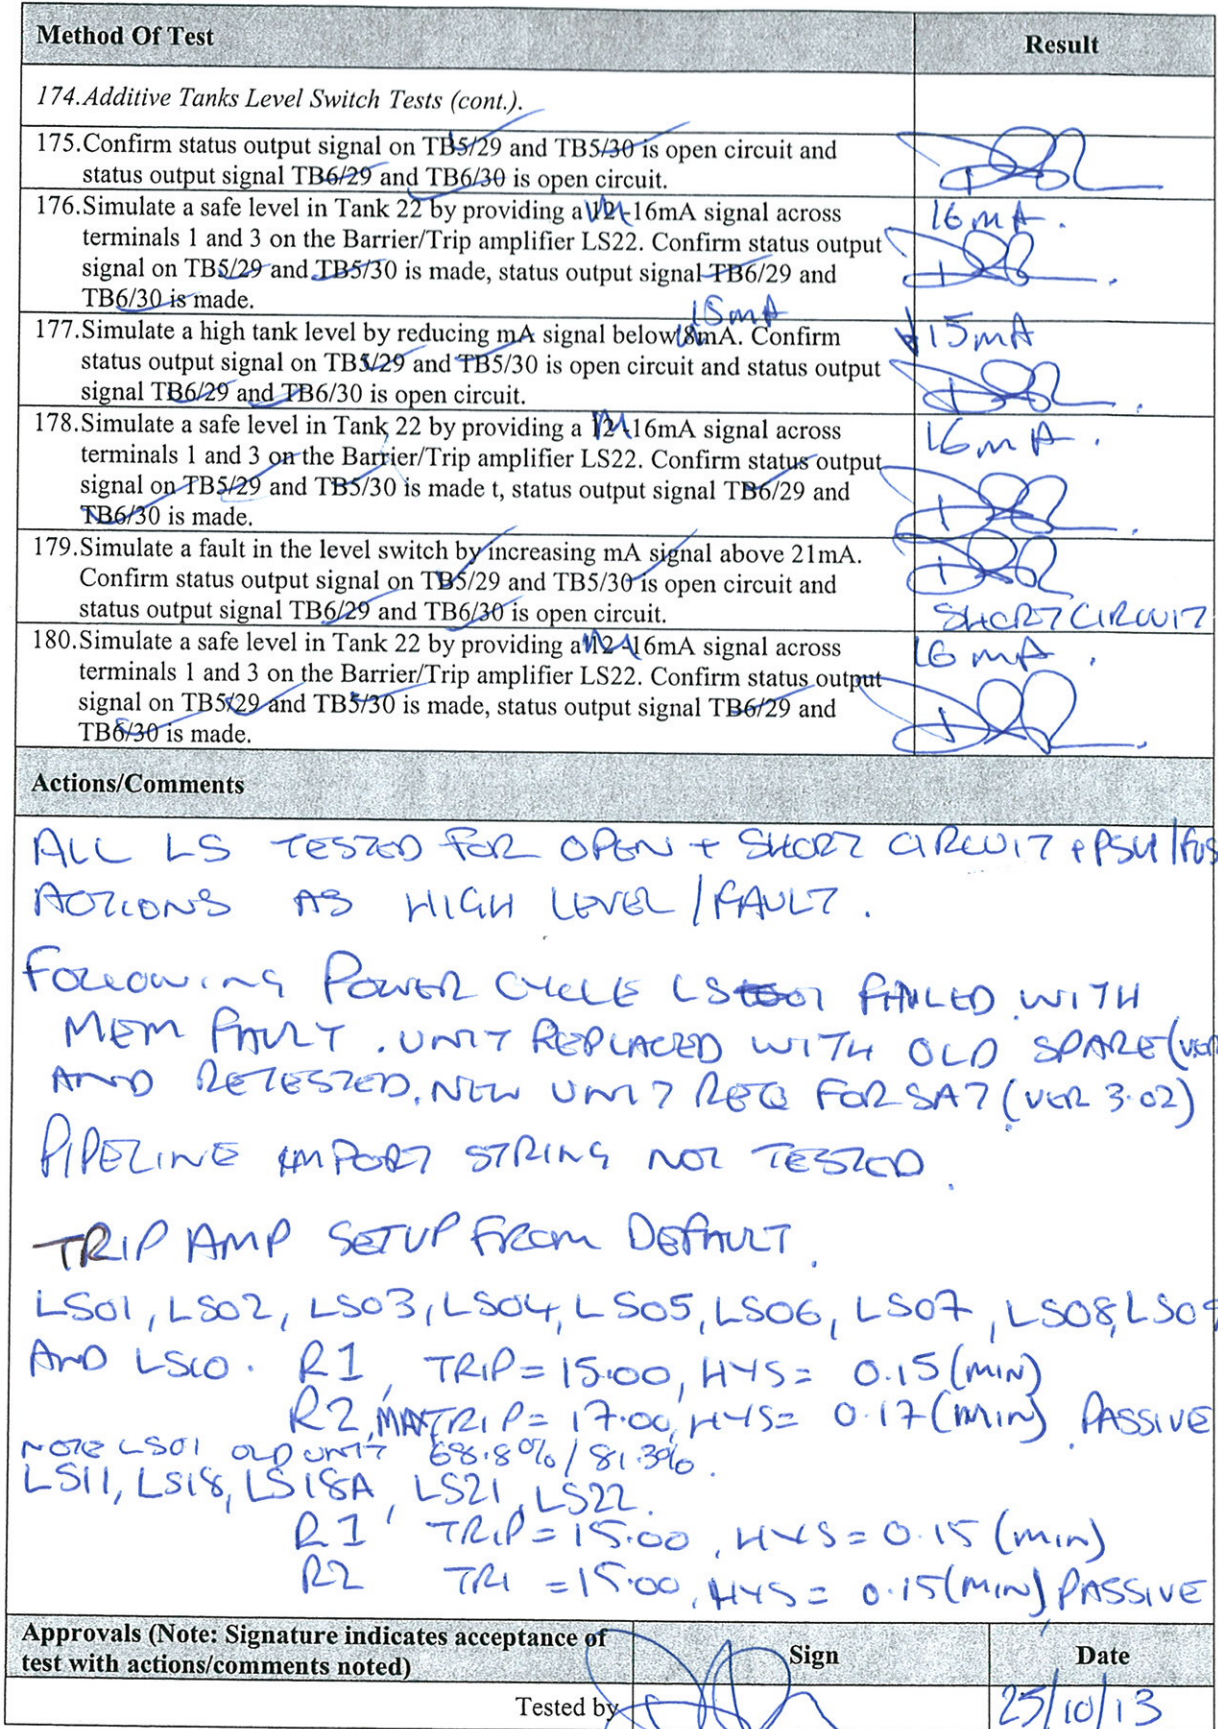 Method Of Test Result
174.Additive Tanks Level Switch Tests (cont.).
175.Confirm status output signal on TB5/29 and TB5/30 is open circuit and
status output signal TB6/29 and TB6/30 is open circuit.
176.Simulate a safe level in Tank 22 by providing a 12-16mA signal across 16mA.
terminals 1 and 3 on the Barrier/Trip amplifier LS22. Confirm status output
signal on TB5/29 and TB5/30 is made, status output signal TB6/29 and
TB6/30 is made.
15mA
177.Simulate a high tank level by reducing mA signal below 8mA. Confirm 15mA
status output signal on TB5/29 and TB5/30 is open circuit and status output
signal TB6/29 and TB6/30 is open circuit.
178.Simulate a safe level in Tank 22 by providing a 12-16mA signal across 16mA.
terminals 1 and 3 on the Barrier/Trip amplifier LS22. Confirm status output
signal on TB5/29 and TB5/30 is made t, status output signal TB6/29 and
TB6/30 is made.
179.Simulate a fault in the level switch by increasing mA signal above 21mA.
Confirm status output signal on TB5/29 and TB5/30 is open circuit and
status output signal TB6/29 and TB6/30 is open circuit. SHORT CIRCUIT
180.Simulate a safe level in Tank 22 by providing a 12-16mA signal across 16mA.
terminals 1 and 3 on the Barrier/Trip amplifier LS22. Confirm status output
signal on TB5/29 and TB5/30 is made, status output signal TB6/29 and
TB6/30 is made.
Actions/Comments
ALL LS TESTED FOR OPEN + SHORT CIRCUIT + PSU/FUS
ACTIONS AS HIGH LEVEL/FAULT.
FOLLOWING POWER CYCLE LS01 FAILED WITH
MEM FAULT. UNIT REPLACED WITH OLD SPARE (VER
AND RETESTED. NEW UNIT REQ FOR SAT (VER 3.02)
PIPELINE IMPORT STRING NOT TESTED.
TRIP AMP SETUP FROM DEFAULT.
LS01, LS02, LS03, LS04, LS05, LS06, LS07, LS08, LS09
AND LS10. R1, TRIP = 15.00, HYS = 0.15 (MIN)
R2, MAX TRIP = 17.00, HYS = 0.17 (MIN) PASSIVE
NOTE LS01 OLD UNIT 68.8% / 81.3%.
LS11, LS18, LS18A, LS21, LS22.
R1 TRIP = 15.00, HYS = 0.15 (MIN)
R2 TRI = 15.00, HYS = 0.15 (MIN) PASSIVE
Approvals (Note: Signature indicates acceptance of Sign Date
test with actions/comments noted)
Tested by 25/10/13